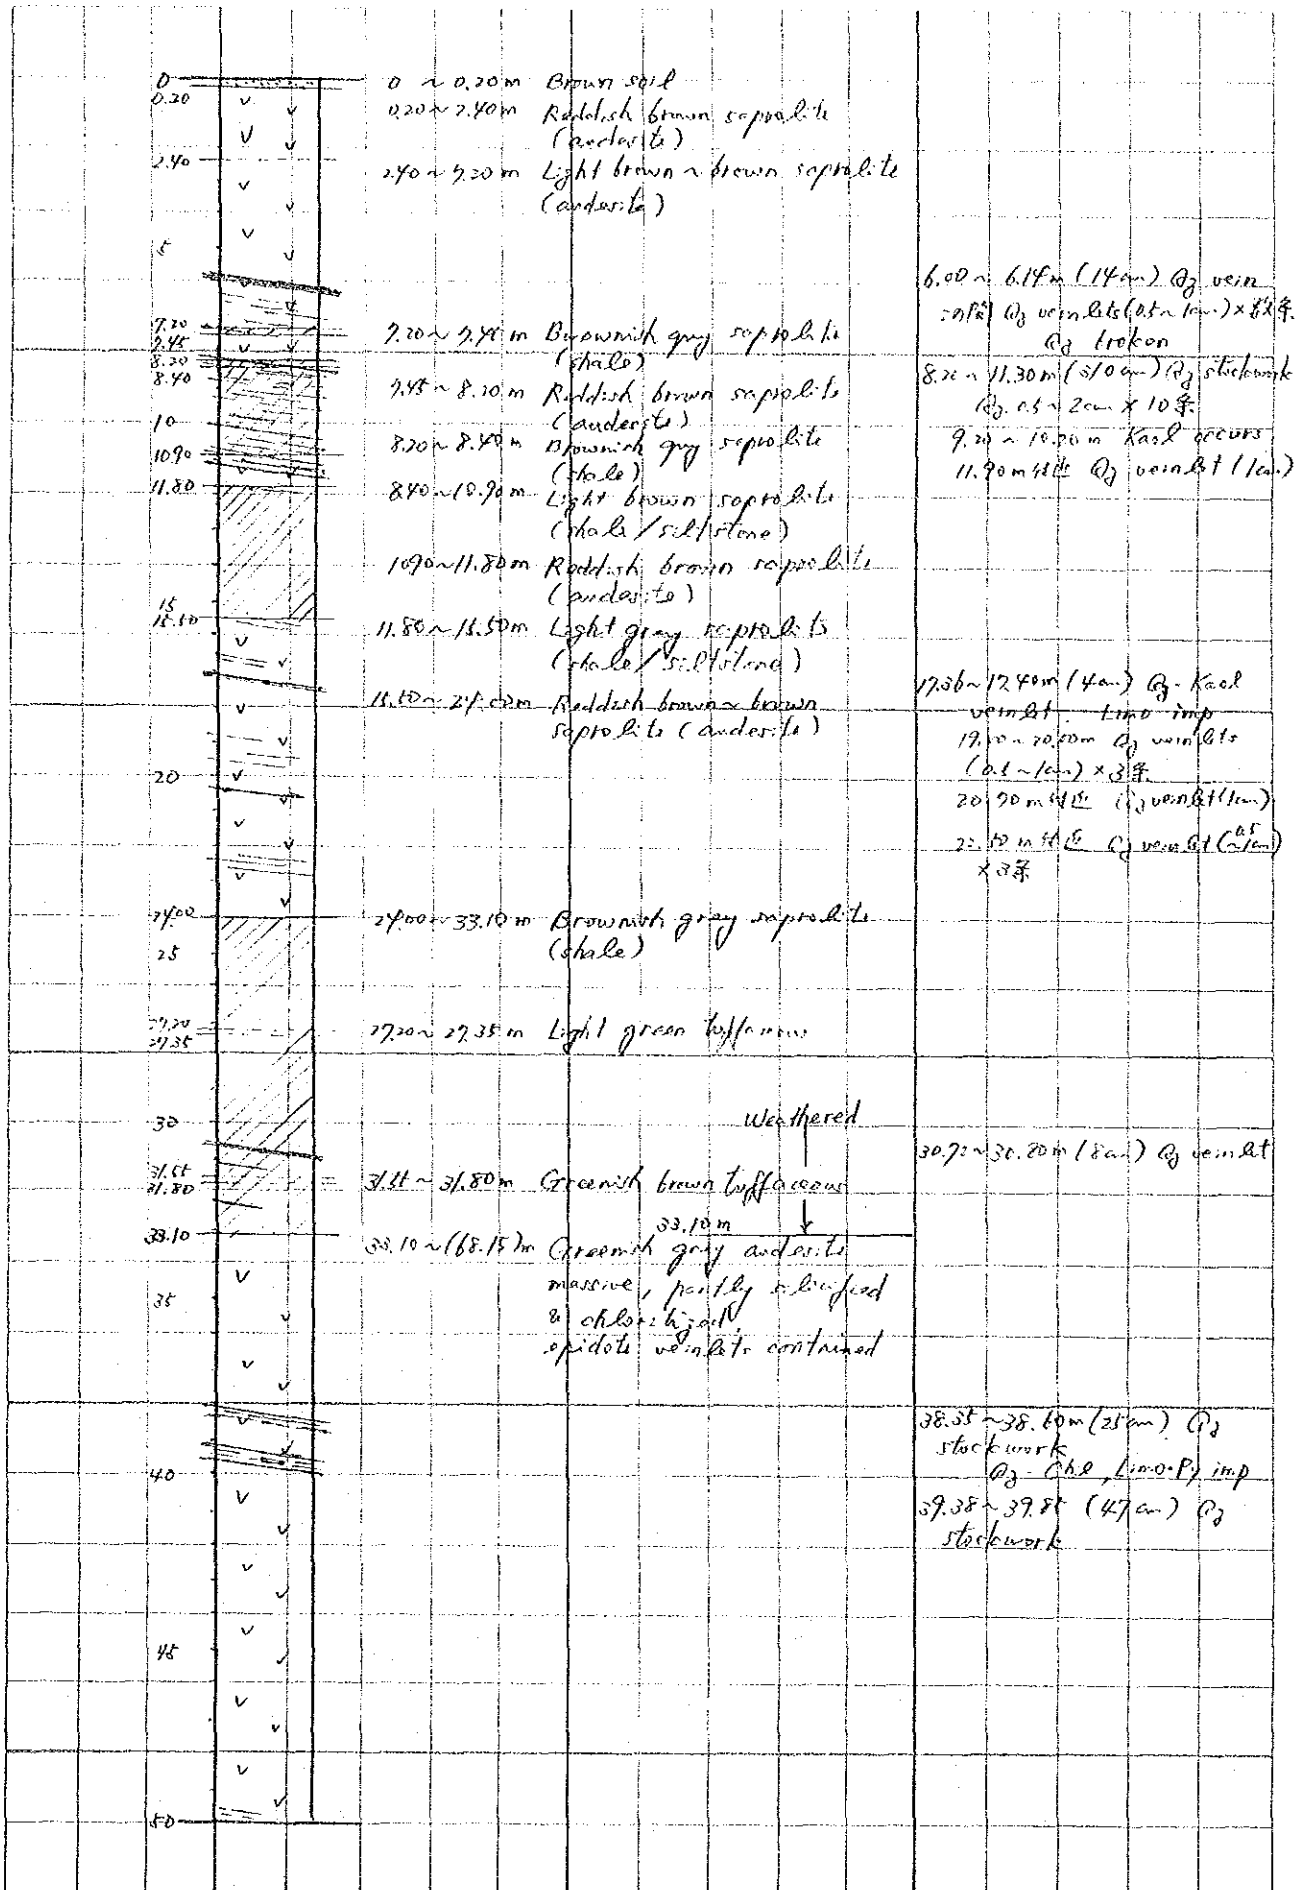 0
0.20
2.40
5
7.20
7.45
8.20
8.40
10
10.90
11.80
15
15.50
20
24.00
25
27.20
27.35
30
31.55
31.80
33.10
35
40
45
50
0 ~ 0.20m Brown soil
0.20 ~ 2.40m Reddish brown saprolite
(andesite)
2.40 ~ 7.20m Light brown ~ brown saprolite
(andesite)
7.20 ~ 7.45m Brownish gray saprolite
(shale)
7.45 ~ 8.20m Reddish brown saprolite
(andesite)
8.20 ~ 8.40m Brownish gray saprolite
(shale)
8.40 ~ 10.90m Light brown saprolite
(shale / siltstone)
10.90 ~ 11.80m Reddish brown saprolite
(andesite)
11.80 ~ 15.50m Light gray saprolite
(shale / siltstone)
15.50 ~ 24.00m Reddish brown ~ brown
saprolite (andesite)
24.00 ~ 33.10m Brownish gray saprolite
(shale)
27.20 ~ 27.35m Light green tuffaceous
Weathered
31.55 ~ 31.80m Greenish brown tuffaceous
33.10m
33.10 ~ (68.15)m Greenish gray andesite
massive, partly silicified
& chloritized
epidote veinlets contained
6.00 ~ 6.14m (14cm) Qz vein
の間 Qz veinlets (0.5 ~ 1cm) × 数条
Qz broken
8.20 ~ 11.30m (310cm) Qz stockwork
Qz 0.5 ~ 2cm × 10条
9.20 ~ 10.20m Kaol occurs
11.90m付近 Qz veinlet (1cm)
17.36 ~ 17.40m (4cm) Qz-Kaol
veinlet Limo imp
19.00 ~ 20.00m Qz veinlets
(0.5 ~ 1cm) × 3条
20.90m付近 Qz veinlet (1cm)
付近 Qz veinlet (0.5 ~ 1cm)
× 3条
30.72 ~ 30.80m (8cm) Qz veinlet
38.35 ~ 38.60m (25cm) Qz
stockwork
Qz-Chl, Limo-Py imp
39.38 ~ 39.85 (47cm) Qz
stockwork